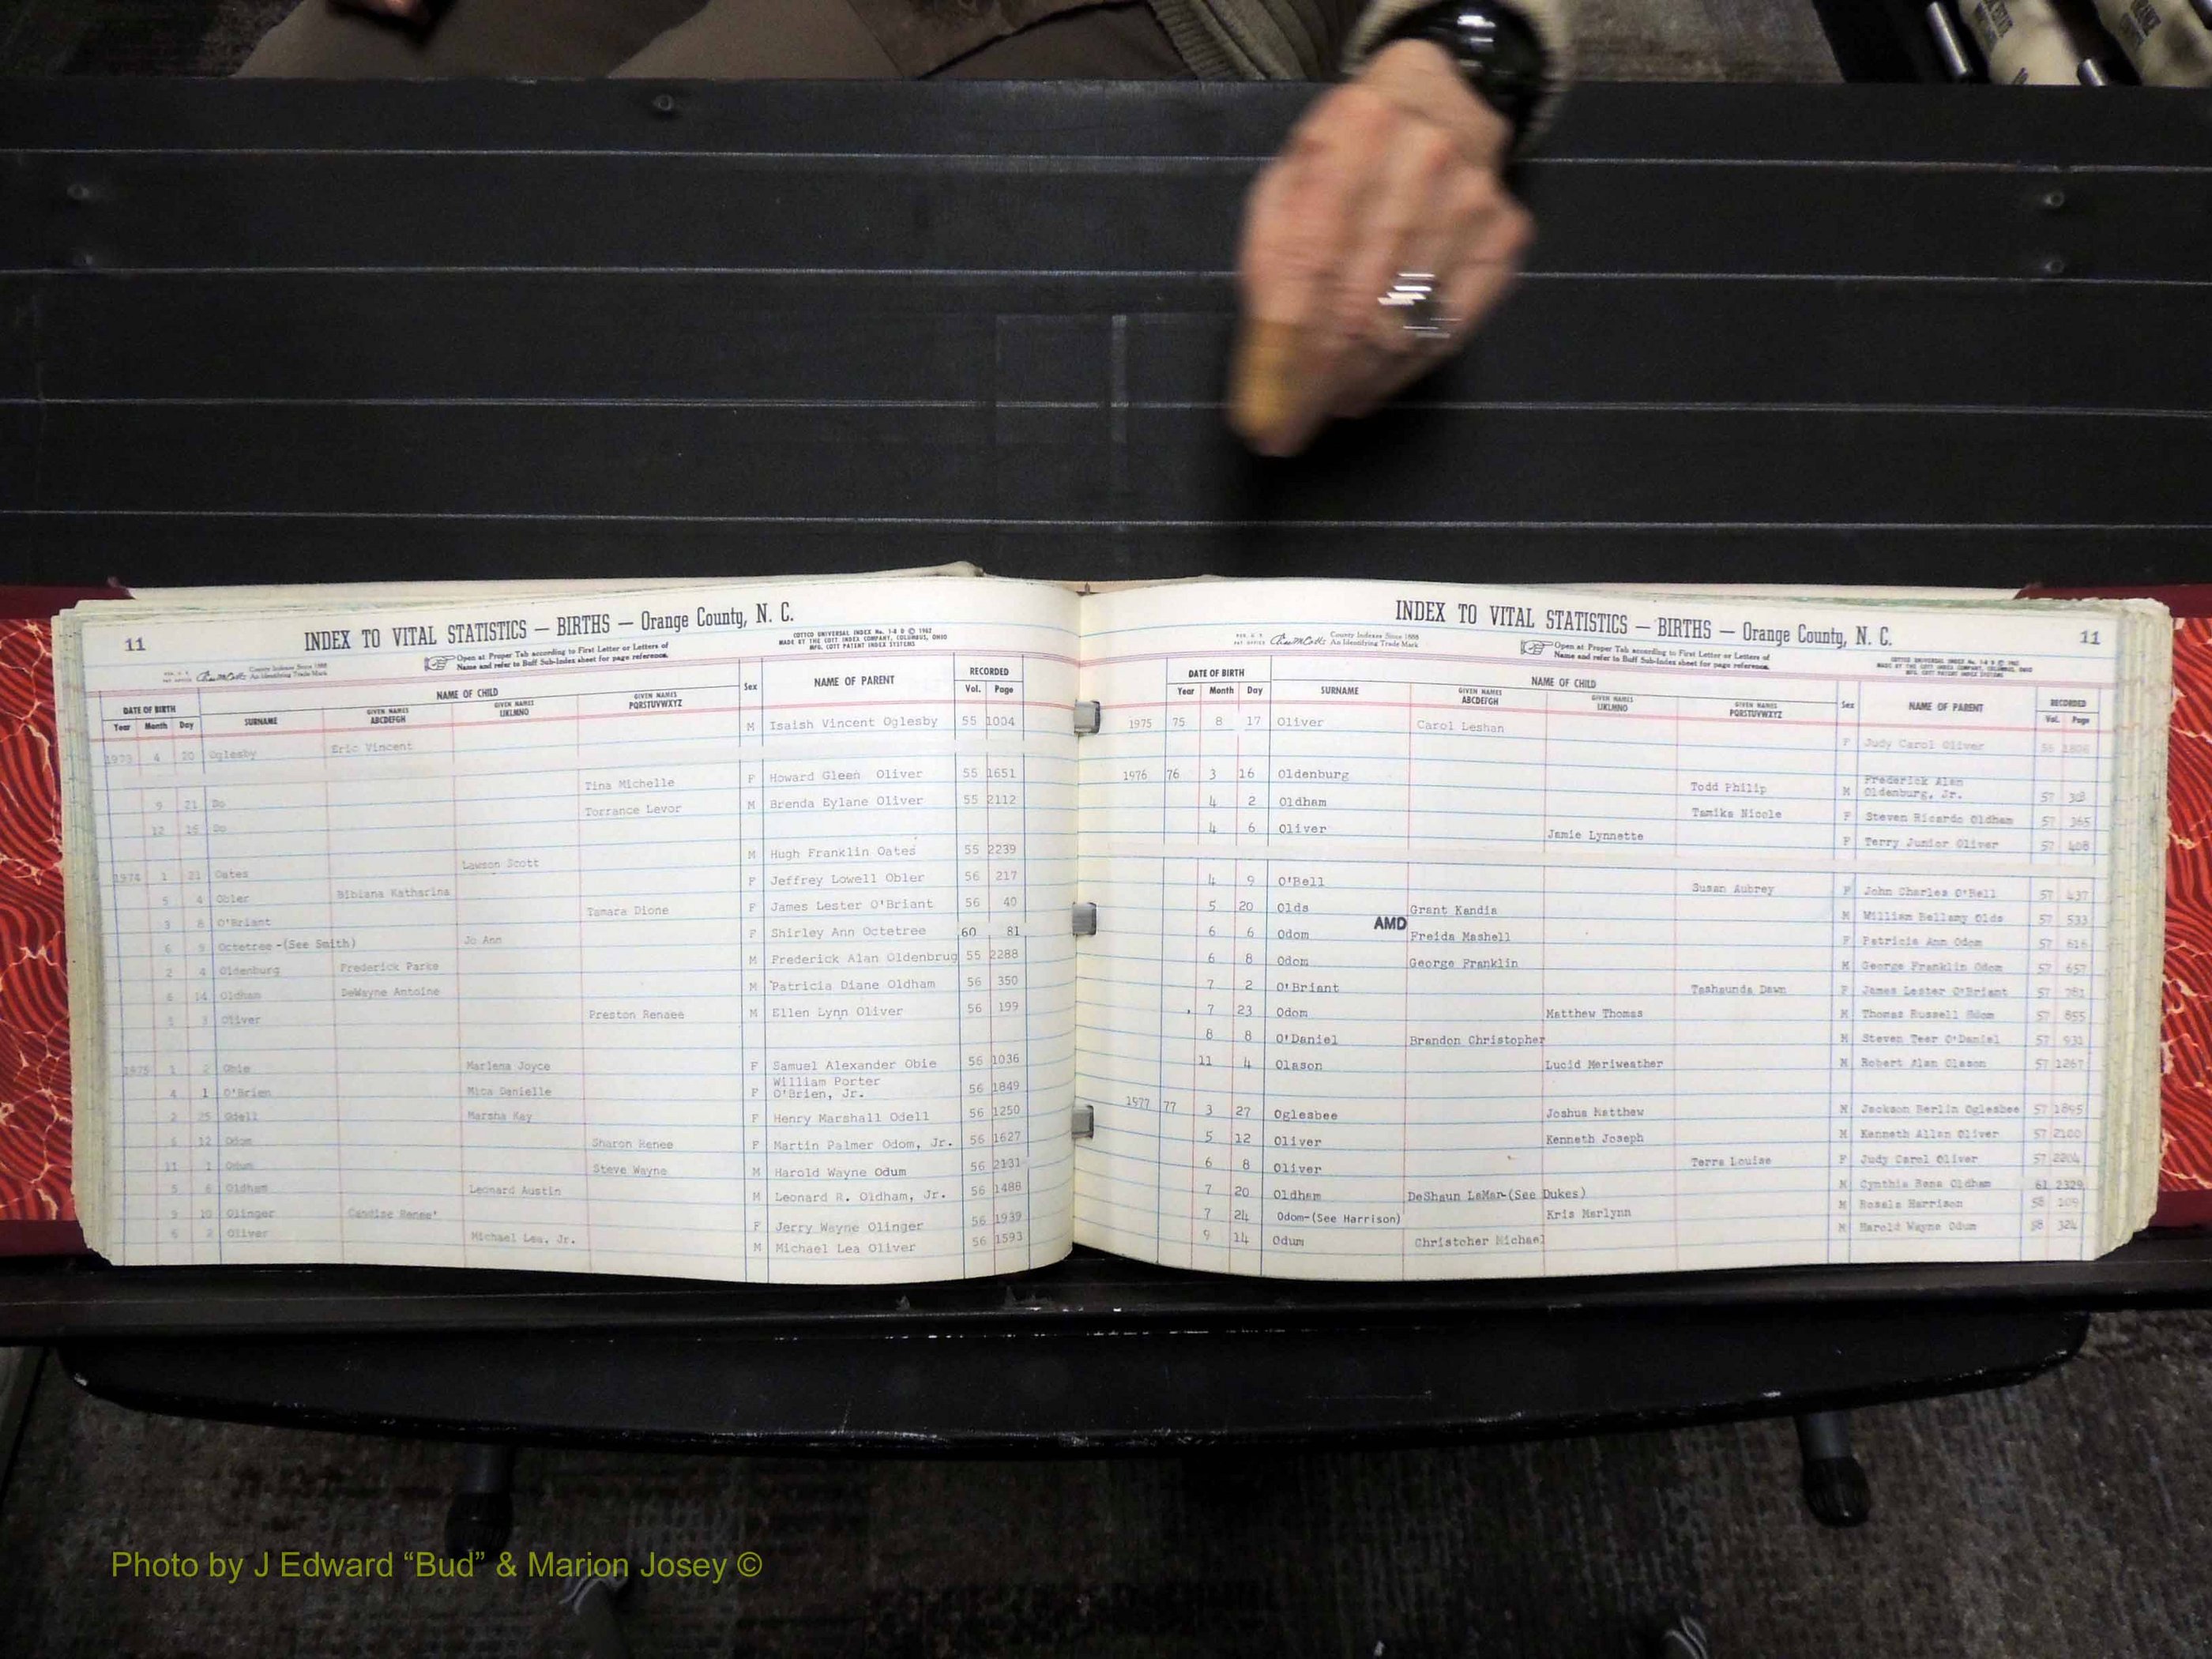 11 INDEX TO VITAL STATISTICS — BIRTHS — Orange County, N. C.
COTTCO UNIVERSAL INDEX No. 1-8 D © 1962
MADE BY THE COTT INDEX COMPANY, COLUMBUS, OHIO
MFG. COTT PATENT INDEX SYSTEMS
County Indexes Since 1888
An Identifying Trade Mark
Open at Proper Tab according to First Letter or Letters of
Name and refer to Buff Sub-Index sheet for page reference.
DATE OF BIRTH NAME OF CHILD Sex NAME OF PARENT RECORDED
Year Month Day SURNAME GIVEN NAMES ABCDEFGH GIVEN NAMES IJKLMNO GIVEN NAMES PQRSTUVWXYZ Vol. Page
1973 4 20 Oglesby Eric Vincent M Isaish Vincent Oglesby 55 1004
9 21 Do Tina Michelle F Howard Gleen Oliver 55 1651
12 16 Do Torrance Levor M Brenda Eylane Oliver 55 2112
1974 1 21 Oates Lawson Scott M Hugh Franklin Oates 55 2239
5 4 Obler Bibiana Katharina F Jeffrey Lowell Obler 56 217
3 8 O'Briant Tamara Dione F James Lester O'Briant 56 40
6 9 Octetree-(See Smith) Jo Ann F Shirley Ann Octetree 60 81
2 4 Oldenburg Frederick Parke M Frederick Alan Oldenbrug 55 2288
6 14 Oldham DeWayne Antoine M Patricia Diane Oldham 56 350
3 Oliver Preston Renaee M Ellen Lynn Oliver 56 199
1975 1 2 Obie Marlena Joyce F Samuel Alexander Obie 56 1036
4 1 O'Brien Mica Danielle F William Porter O'Brien, Jr. 56 1849
2 25 Odell Marsha Kay F Henry Marshall Odell 56 1250
12 Odom Sharon Renee F Martin Palmer Odom, Jr. 56 1627
11 1 Odum Steve Wayne M Harold Wayne Odum 56 2131
5 6 Oldham Leonard Austin M Leonard R. Oldham, Jr. 56 1488
9 10 Olinger Candise Renee' F Jerry Wayne Olinger 56 1939
6 2 Oliver Michael Lea, Jr. M Michael Lea Oliver 56 1593
INDEX TO VITAL STATISTICS — BIRTHS — Orange County, N. C. 11
County Indexes Since 1888
An Identifying Trade Mark
Open at Proper Tab according to First Letter or Letters of
Name and refer to Buff Sub-Index sheet for page reference.
COTTCO UNIVERSAL INDEX No. 1-8 D © 1962
MADE BY THE COTT INDEX COMPANY, COLUMBUS, OHIO
MFG. COTT PATENT INDEX SYSTEMS
DATE OF BIRTH NAME OF CHILD Sex NAME OF PARENT RECORDED
Year Month Day SURNAME GIVEN NAMES ABCDEFGH GIVEN NAMES IJKLMNO GIVEN NAMES PQRSTUVWXYZ Vol. Page
1975 75 8 17 Oliver Carol Leshan F Judy Carol Oliver 56
1976 76 3 16 Oldenburg Todd Philip M Frederick Alan Oldenburg, Jr. 57
4 2 Oldham Tamika Nicole F Steven Ricardo Oldham 57 365
4 6 Oliver Jamie Lynnette F Terry Junior Oliver 57 408
4 9 O'Bell Susan Aubrey F John Charles O'Bell 57 437
5 20 Olds Grant Kandis M William Bellamy Olds 57 533
6 6 Odom AMD Freida Mashell F Patricia Ann Odom 57 616
6 8 Odom George Franklin M George Franklin Odom 57 657
7 2 O'Briant Teahaunda Dawn F James Lester O'Briant 57 781
7 23 Odom Matthew Thomas M Thomas Russell Odom 57 855
8 8 O'Daniel Brandon Christopher M Steven Teer O'Daniel 57 931
11 4 Olason Lucid Meriweather M Robert Alan Olason 57 1267
1977 77 3 27 Oglesbee Joshua Matthew M Jackson Berlin Oglesbee 57 1895
5 12 Oliver Kenneth Joseph M Kenneth Allan Oliver 57 2100
6 8 Oliver Terra Louise F Judy Carol Oliver 57 2204
7 20 Oldham DeShaun LaMar-(See Dukes) M Cynthia Rena Oldham 61 2329
7 24 Odom-(See Harrison) Kris Marlynn M Rosals Harrison 58 109
9 14 Odum Christoher Michael M Harold Wayne Odum 58 324
Photo by J Edward “Bud” & Marion Josey ©